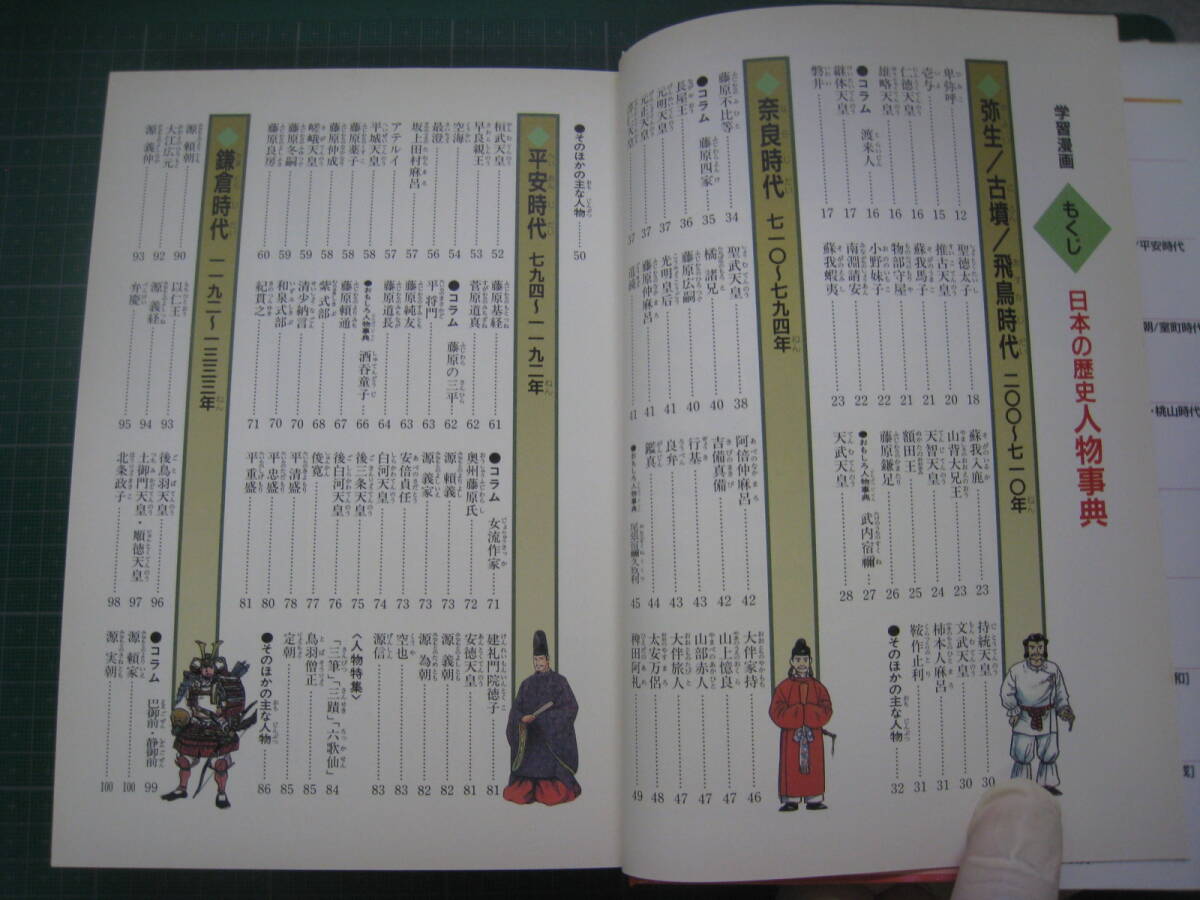 学習漫画
もくじ
日本の歴史人物事典
弥生/古墳/飛鳥時代 二〇〇〜七一〇年
卑弥呼 12
壱与 15
仁徳天皇 16
雄略天皇 16
●コラム 渡来人 16
継体天皇 17
磐井 17
聖徳太子 18
推古天皇 20
蘇我馬子 21
物部守屋 21
小野妹子 22
南淵請安 22
蘇我蝦夷 23
蘇我入鹿 23
山背大兄王 23
天智天皇 24
額田王 25
藤原鎌足 26
●おもしろ人物事典 武内宿禰 27
天武天皇 28
持統天皇 30
文武天皇 30
柿本人麻呂 31
鞍作止利 31
●そのほかの主な人物 32
奈良時代 七一〇〜七九四年
藤原不比等 34
●コラム 藤原四家 35
長屋王 36
元明天皇 37
元正天皇 37
37
聖武天皇 38
橘 諸兄 40
藤原広嗣 40
光明皇后 41
藤原仲麻呂 41
道鏡 41
阿倍仲麻呂 42
吉備真備 42
行基 43
良弁 43
鑑真 44
●おもしろ人物事典 尾張宿禰久玖利 45
大伴家持 46
山上憶良 47
山部赤人 47
大伴旅人 47
太安万侶 48
稗田阿礼 49
●そのほかの主な人物 50
平安時代 七九四〜一一九二年
桓武天皇 52
早良親王 53
空海 54
最澄 56
坂上田村麻呂 56
アテルイ 57
平城天皇 57
藤原薬子 58
藤原仲成 58
嵯峨天皇 59
藤原冬嗣 59
藤原良房 60
藤原基経 61
菅原道真 62
●コラム 藤原の三平 62
平 将門 63
藤原純友 63
藤原道長 64
●おもしろ人物事典 酒呑童子 66
藤原頼通 67
紫式部 68
清少納言 70
和泉式部 70
紀貫之 71
●コラム 女流作家 71
奥州藤原氏 72
源 頼義 73
源 義家 73
安倍貞任 73
白河天皇 74
後三条天皇 75
後白河天皇 76
俊寛 77
平 清盛 78
平 忠盛 80
平 重盛 81
建礼門院徳子 81
安徳天皇 81
源 義朝 82
源 為朝 82
空也 83
源信 83
〈人物特集〉
「三筆」「三蹟」「六歌仙」 84
鳥羽僧正 85
定朝 85
●そのほかの主な人物 86
鎌倉時代 一一九二〜一三三三年
源 頼朝 90
大江広元 92
源 義仲 93
以仁王 93
源 義経 94
弁慶 95
後鳥羽天皇 96
土御門天皇・順徳天皇 97
北条政子 98
●コラム 巴御前・静御前 99
源 頼家 100
源 実朝 100
/平安時代
朝/室町時代
・桃山時代
和]